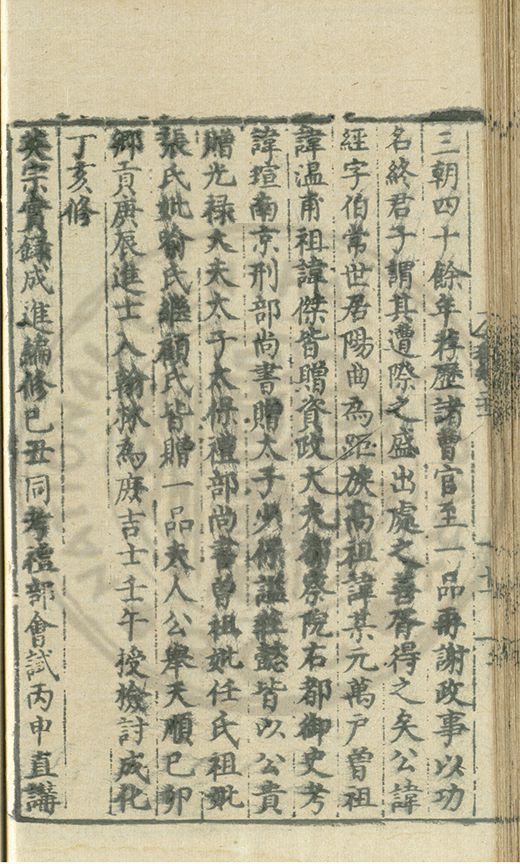 三朝四十餘年旉歷諸曹官至一品再謝政事以功
名終君子謂其遭際之盛出處之善胥得之矣公諱
經字伯常世居陽曲為距族高祖諱某元萬戶曾祖
諱溫甫祖諱傑皆贈資政大夫都察院右都御史考
諱瑄南京刑部尚書贈太子少保謚莊懿皆以公貴
贈光祿大夫太子太保禮部尚書曾祖妣任氏祖妣
張氏妣喻氏繼顧氏皆贈一品夫人公舉天順己卯
鄉貢庚辰進士入翰林為庶吉士壬午授檢討成化
丁亥修
英宗實錄成進編修己丑同考禮部會試丙申直講